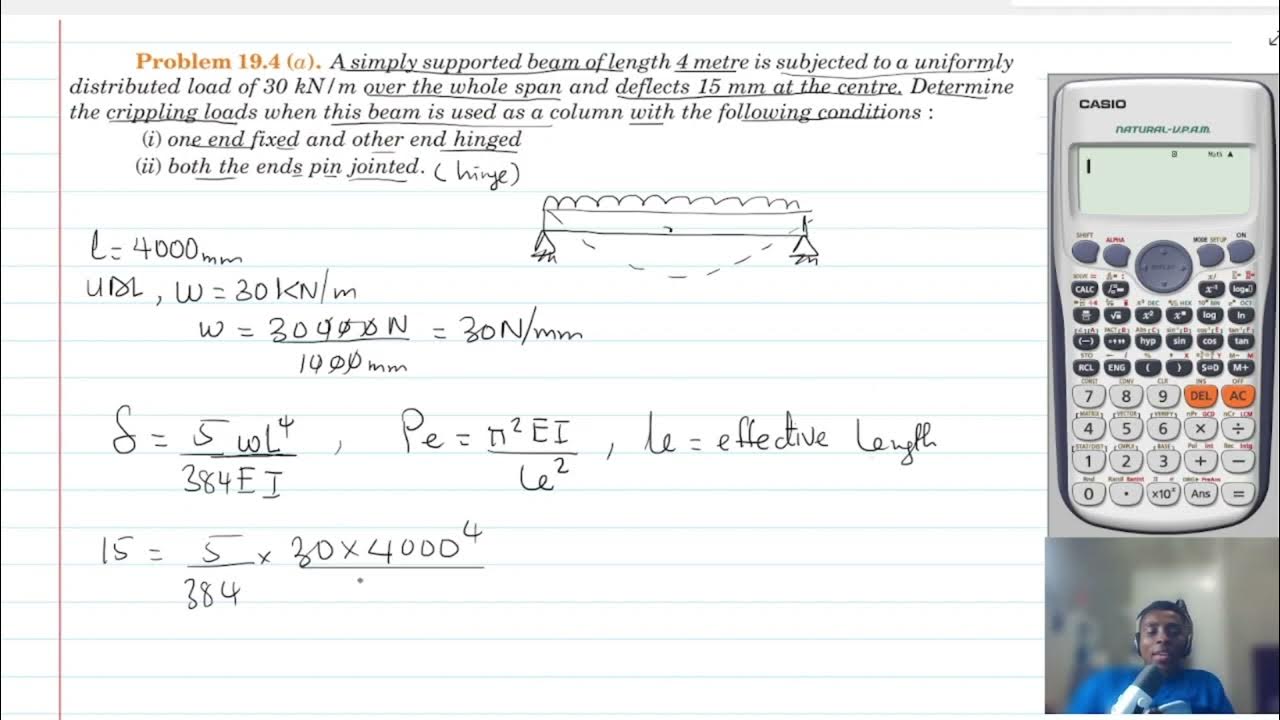 Problem 19.4 (a). A simply supported beam of length 4 metre is subjected to a uniformly
distributed load of 30 kN/m over the whole span and deflects 15 mm at the centre. Determine
the crippling loads when this beam is used as a column with the following conditions :
(i) one end fixed and other end hinged
(ii) both the ends pin jointed. (hinge)
l = 4000mm
UDL, W = 30KN/m
w = 30000N / 1000mm = 30N/mm
δ = 5wL⁴ / 384EI , Pe = π²EI / le² , le = effective length
15 = 5/384 × 30×4000⁴
CASIO
NATURAL-V.P.A.M.
Math ▲
SHIFT ALPHA MODE SETUP ON
CALC x⁻¹ log
x² log ln
(−) hyp sin cos tan
RCL ENG ( ) S⇔D M+
7 8 9 DEL AC
4 5 6 × ÷
1 2 3 + −
0 . ×10ˣ Ans =